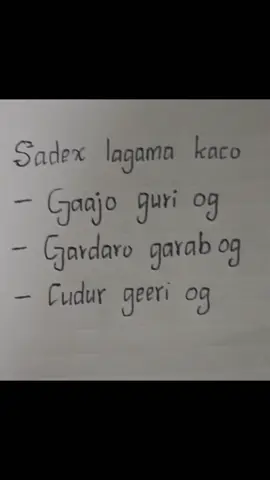 Sadex lagama kaco
- Gaajo guri og
- Gardaro garab og
- Cudur geeri og